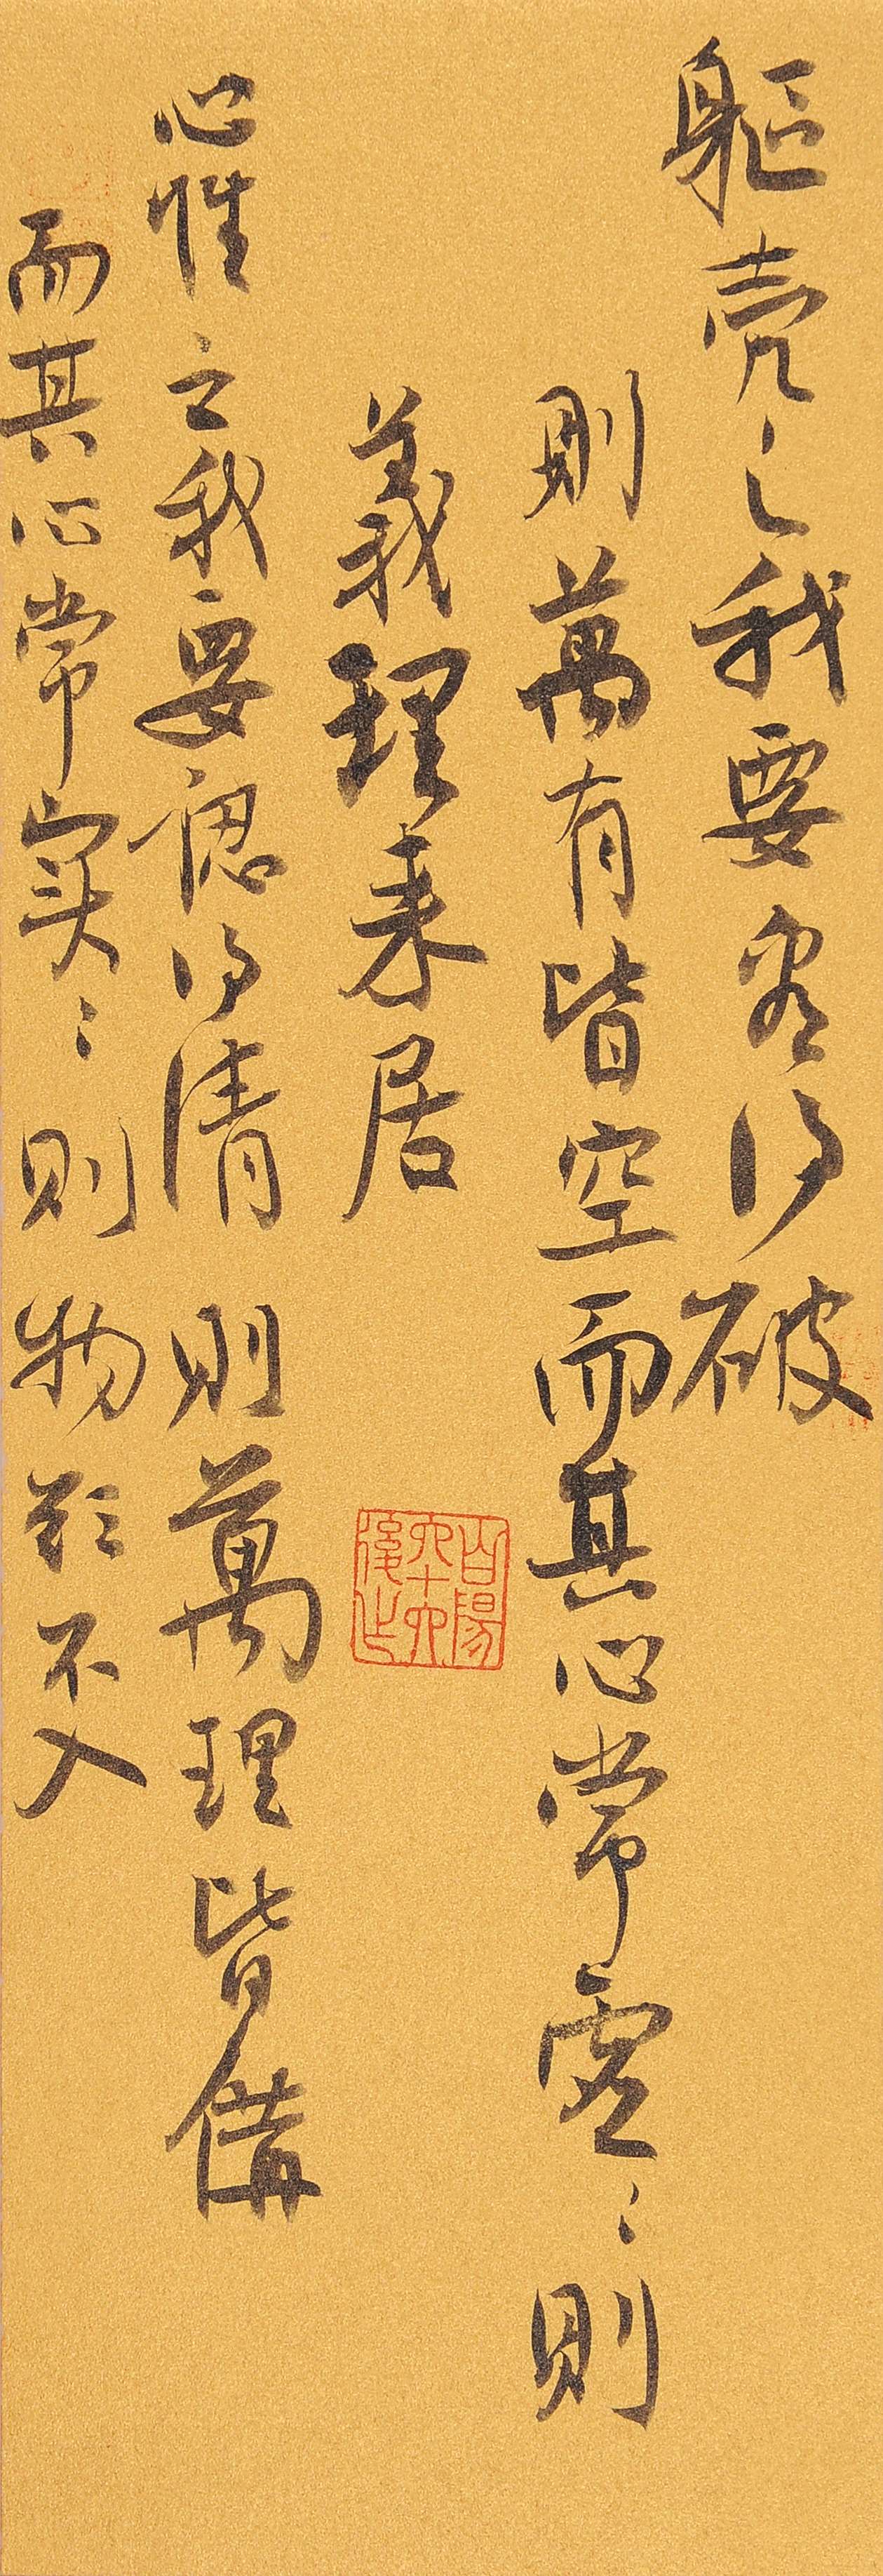 軀壳之我要看得破
則萬有皆空而其心常虛〻則
義理來居
心性之我要認得清則萬理皆備
而其心常实〻則物欲不入
白陽
六十四
後作